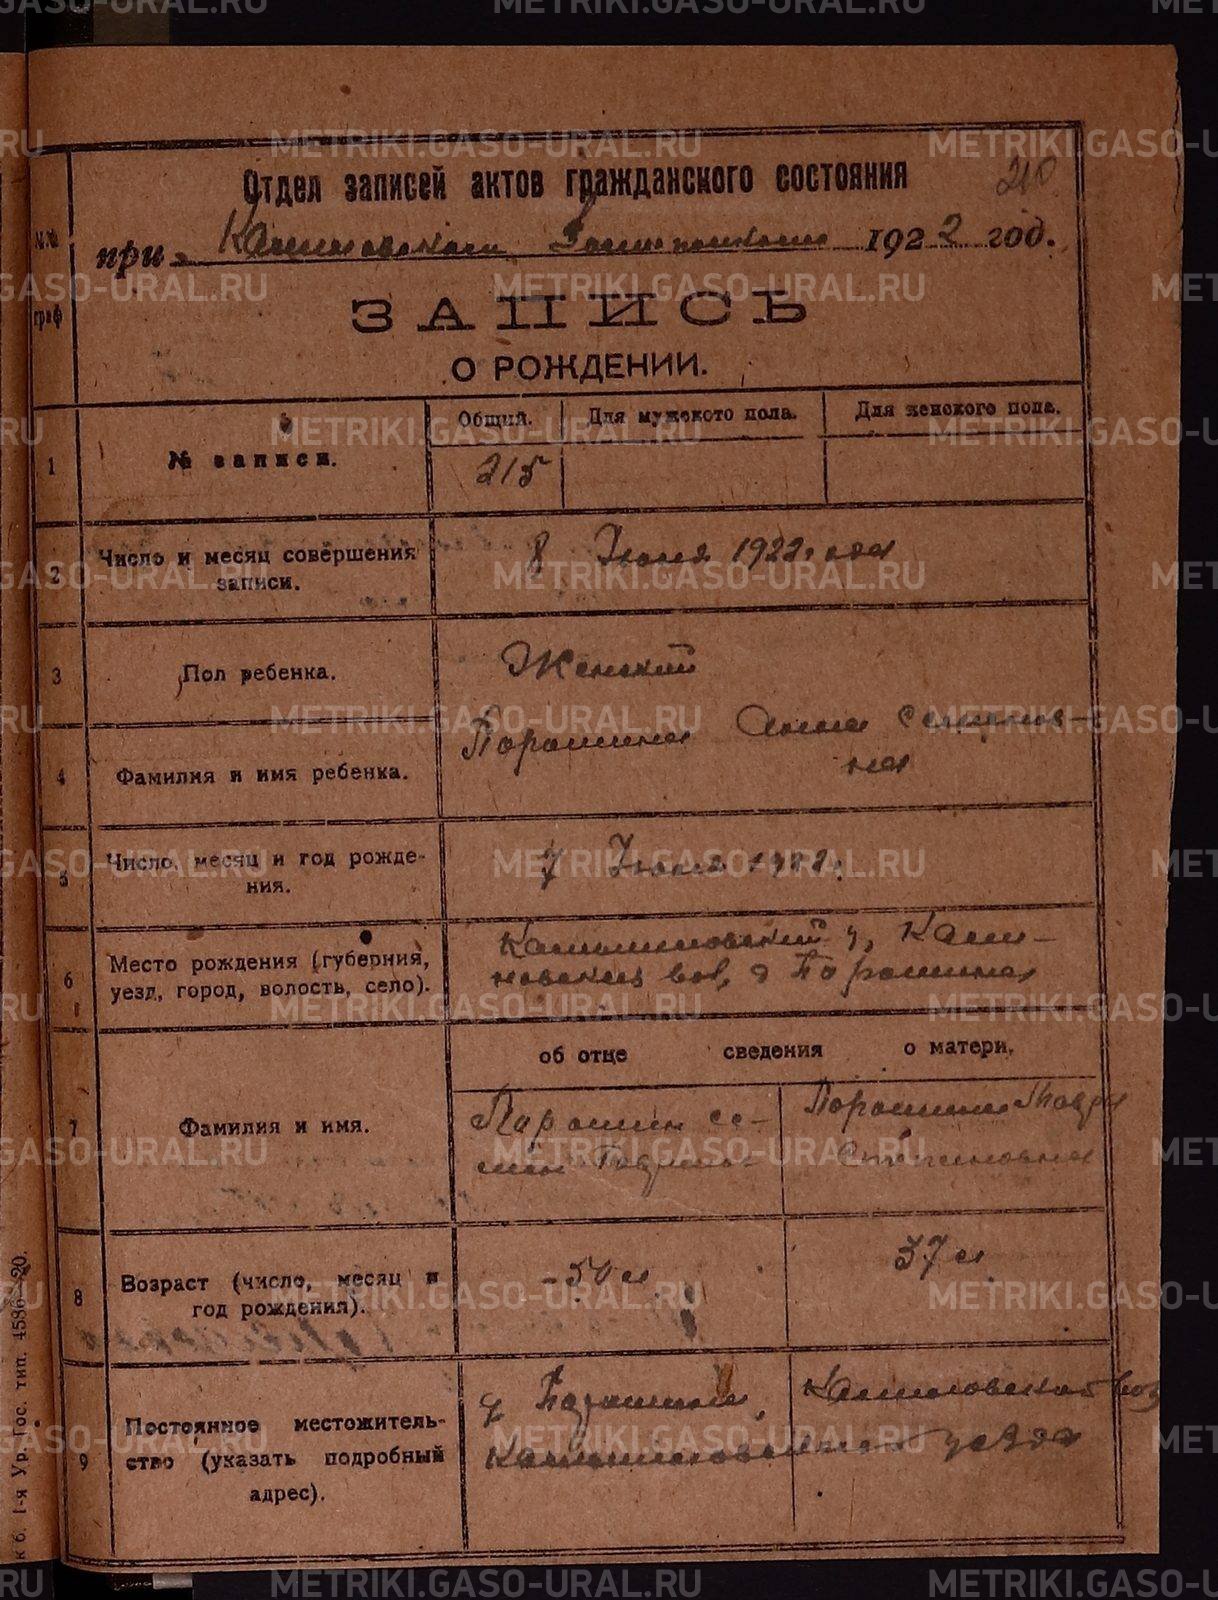 Отдел записей актов гражданского состояния
210
№№ граф
при 1922 год.
ЗАПИСЬ
О РОЖДЕНИИ.
1 № записи. Общий. Для мужского пола. Для женского пола.
215
2 Число и месяц совершения записи. 8 Июня 1922 года
3 Пол ребенка. Женский
4 Фамилия и имя ребенка. Порошина Анна Семенов-
на
5 Число, месяц и год рожде-
ния. 7 1922 г.
6 Место рождения (губерния,
уезд, город, волость, село).
Камышловский у,
вол, д Порошина
об отце сведения о матери.
7 Фамилия и имя.
Порошин Се- Порошина
мен Степановна
8 Возраст (число, месяц и
год рождения). 50 л 37 л
9 Постоянное местожитель-
ство (указать подробный
адрес).
д Порошина, вол
Камышловского уезда
к б. 1-я Ур. Гос. тип. 4586—20.
METRIKI.GASO-URAL.RU